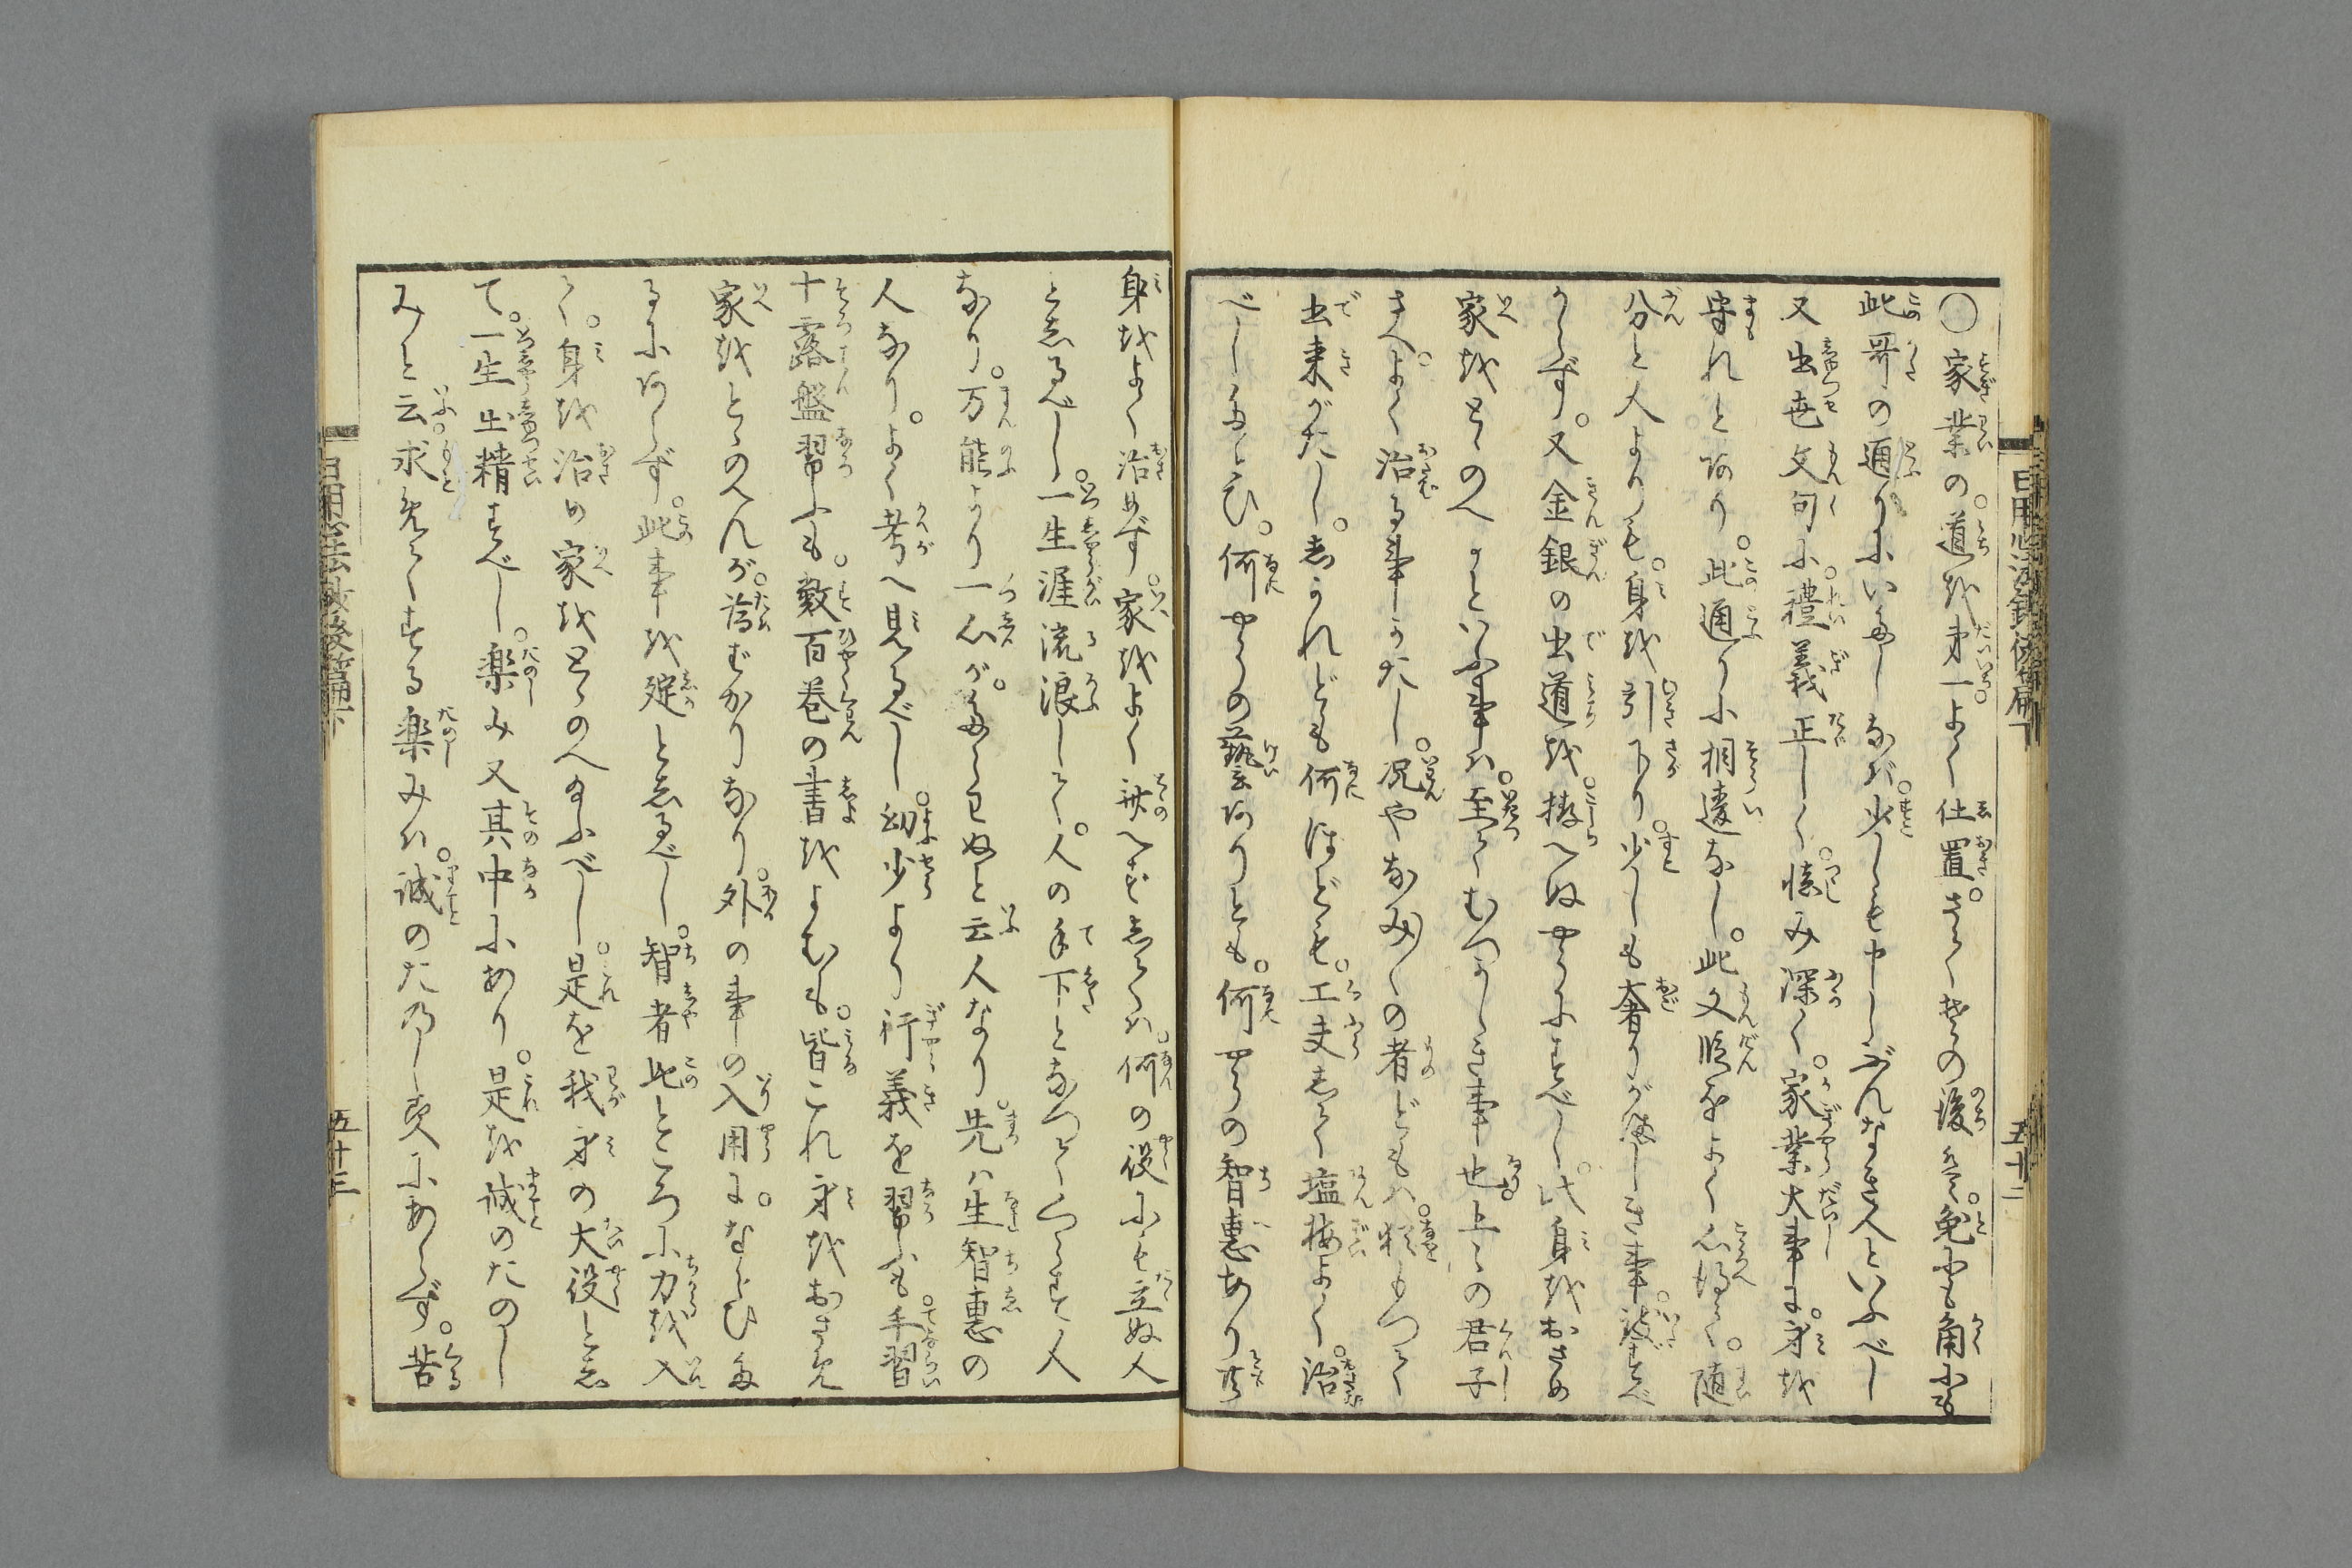 ○家業の。道を第一よく仕置。さてその後は。兎にも角にも
此哥の通りにいたしなば。少しも申しぶんなき人といふべし
又出世文句に。禮義正しく。慎み深く。家業大事に。身を
守れとあり。此通りに相違なし。此文段をよく心得て。随
分と人よりも。身を引下り。少しも奢りがましき事。致すべ
からず。又金銀の出道を。拵へぬやうにすべし。此身をおさめ
家をとゝのへ といふ事は。至てむつかしき事也。上々の君子
さへ。よく治る事かたし。况やなみ〳〵の者どもは。もつて
出来がたし。しかれども何ほども。工夫して塩梅よく。治
べしたとひ。何やうの藝ありとも。何やうの智恵あり共
身をよく治めず。家をよくへずしては。何の役にも立ぬ人
としるべし。一生涯流浪して。人の手下となつてくらす人
なり。万能より一心が。たらわぬと云人なり。先は生智恵の
人なり。よく考へ見るべし。幼少より行義を習ふも。手習
十露盤習ふも。數百巻の書をよむも。皆これ身をおさめ
家をとゝのへんが。為ばかりなり。外の事の入用に。ならひた
るにあらず。此事を聢としるべし。智者此ところに力を入
て。身を治め家をとゝのへ給ふべし。是を我身の大役とし
て。一生出精すべし。楽み又其中にあり。是を誠のたのし
みと云。求めてする楽みは。誠のたのしみにあらず。苦
日用心法鈔後篇下
五十二
日用心法鈔後篇下
五十三